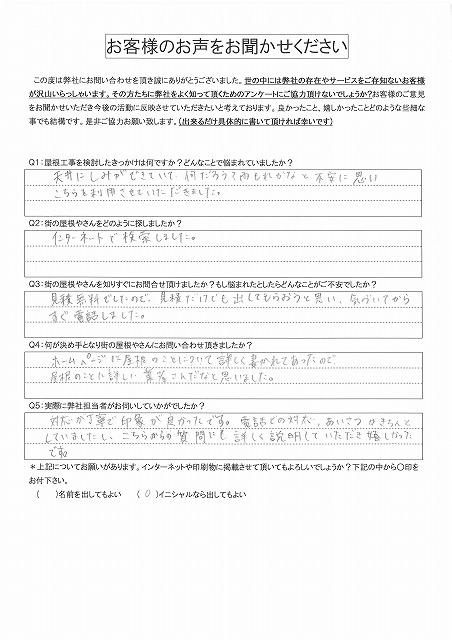 お客様のお声をお聞かせください
この度は弊社にお問い合わせを頂き誠にありがとうございました。世の中には弊社の存在やサービスをご存知ないお客様
が沢山いらっしゃいます。その方たちに弊社をよく知って頂くためのアンケートにご協力頂けないでしょうか?お客様のご意見
をお聞かせいただき今後の活動に反映させていただきたいと考えております。良かったこと、嬉しかったことどのような些細な
事でも結構です。是非ご協力お願い致します。(出来るだけ具体的に書いて頂ければ幸いです)
Q1:屋根工事を検討したきっかけは何ですか?どんなことで悩まれていましたか?
天井にしみができていて、何だろう?雨もれかなと不安に思い
こちらを利用させていただきました。
Q2:街の屋根やさんをどのように探しましたか?
インターネットで検索しました。
Q3:街の屋根やさんを知りすぐにお問合せ頂けましたか?もし悩まれたとしたらどんなことがご不安でしたか?
見積無料でしたので、見積だけでも出してもらおうと思い、気づいてから
すぐ電話しました。
Q4:何が決め手となり街の屋根やさんにお問い合わせ頂きましたか?
ホームページに屋根のことについて詳しく書かれてあったので
屋根のことに詳しい業者さんだなと思いました。
Q5:実際に弊社担当者がお伺いしていかがでしたか?
対応が丁寧で印象が良かったです。電話での対応、あいさつがきちんと
していましたし、こちらからの質問にも詳しく説明していただき嬉しかった
です。
*上記についてお願いがあります。インターネットや印刷物に掲載させて頂いてもよろしいでしょうか?下記の中から〇印を
お付下さい。
( )名前を出してもよい (〇)イニシャルなら出してもよい